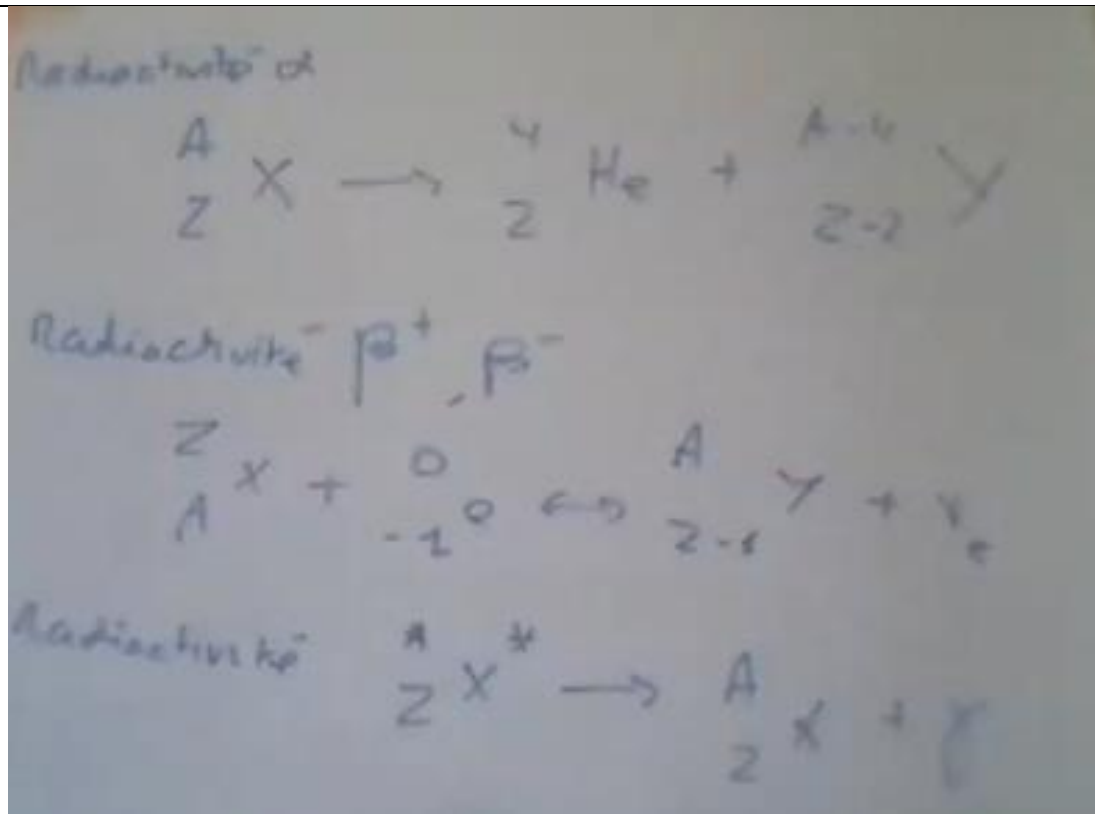 Radioactivité α
^A_Z X → ^4_2 He + ^{A-4}_{Z-2} Y
Radioactivité β⁺, β⁻
^Z_A X + ^0_{-1} 0 ↔ ^A_{Z-1} Y + γ_e
Radioactivité ^A_Z X* → ^A_Z X + γ